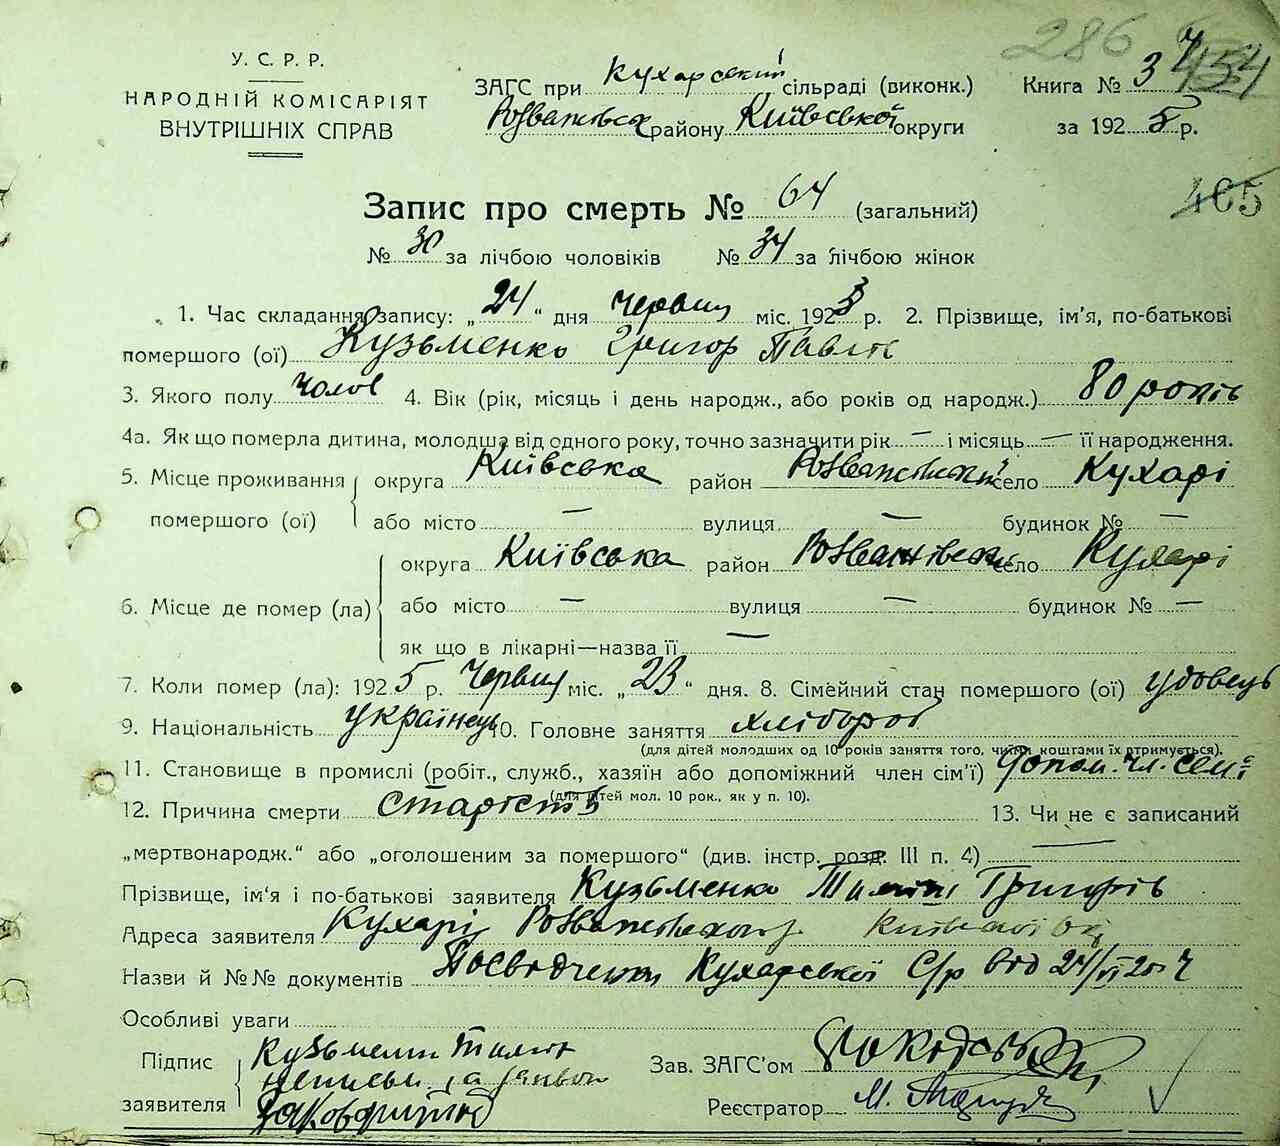 286 454
У. С. Р. Р.
НАРОДНІЙ КОМІСАРІЯТ
ВНУТРІШНІХ СПРАВ
ЗАГС при Кухарський сільраді (виконк.)
Розважівськ району Київської округи
Книга № 3
за 1925 р.
465
Запис про смерть № 64 (загальний)
№ 30 за лічбою чоловіків № 34 за лічбою жінок
1. Час складання запису: „24“ дня червня міс. 1925 р. 2. Прізвище, ім'я, по-батькові
помершого (ої) Кузьменко Григор Павлів
3. Якого полу чолов 4. Вік (рік, місяць і день народж., або років од народж.) 80 років
4а. Як що померла дитина, молодша від одного року, точно зазначити рік — і місяць — її народження.
5. Місце проживання помершого (ої) округа Київська район Розважівський село Кухарі
або місто — вулиця — будинок № —
6. Місце де помер (ла) округа Київська район Розважівськ село Кухарі
або місто — вулиця — будинок № —
як що в лікарні—назва її —
7. Коли помер (ла): 1925 р. Червня міс. „23“ дня. 8. Сімейний стан помершого (ої) удовець
9. Національність українець 10. Головне заняття хлібороб
(для дітей молодших од 10 років заняття того, чиїми коштами їх втримується).
11. Становище в промислі (робіт., служб., хазяїн або допоміжний член сім'ї) допом. чл. семї
(для дітей мол. 10 рок., як у п. 10).
12. Причина смерти старість 13. Чи не є записаний
„мертвонародж.“ або „оголошеним за помершого“ (див. інстр. розд. III п. 4) —
Прізвище, ім'я і по-батькові заявителя Кузьменко Григорів
Адреса заявителя Кухарі Розважівського р. Київської ок
Назви й №№ документів Посвідчення Кухарської С/р від 24/VI
Особливі уваги
Підпис заявителя
Зав. ЗАГС'ом
Реєстратор М.